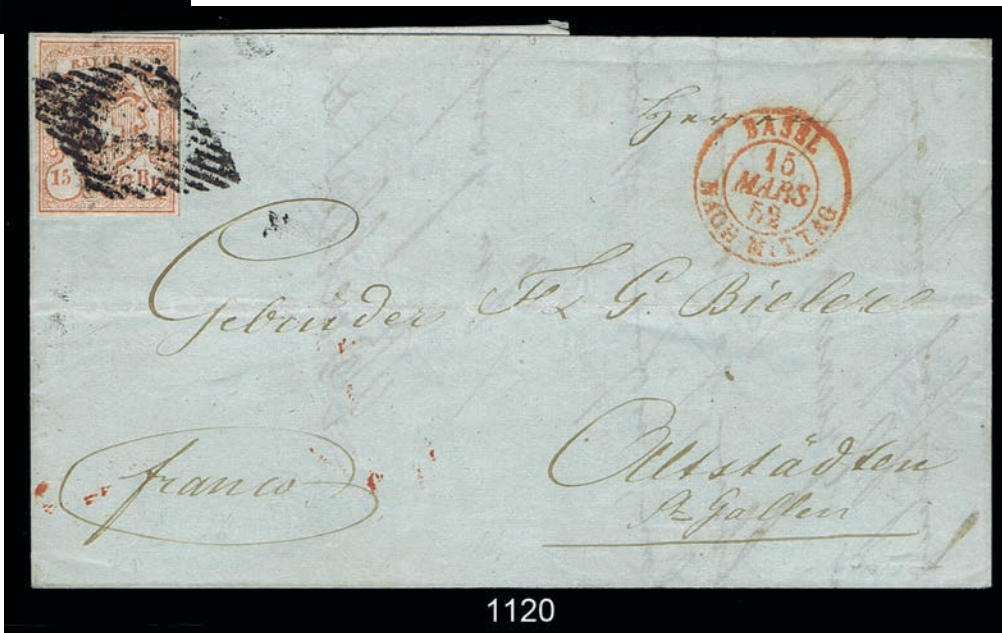 RAYON
15 Rp.
Herren
BASEL
15
MARS
52
NACH MITTAG
Gebrüder F & G. Bieler
franco
Altstädten
St Gallen
1120